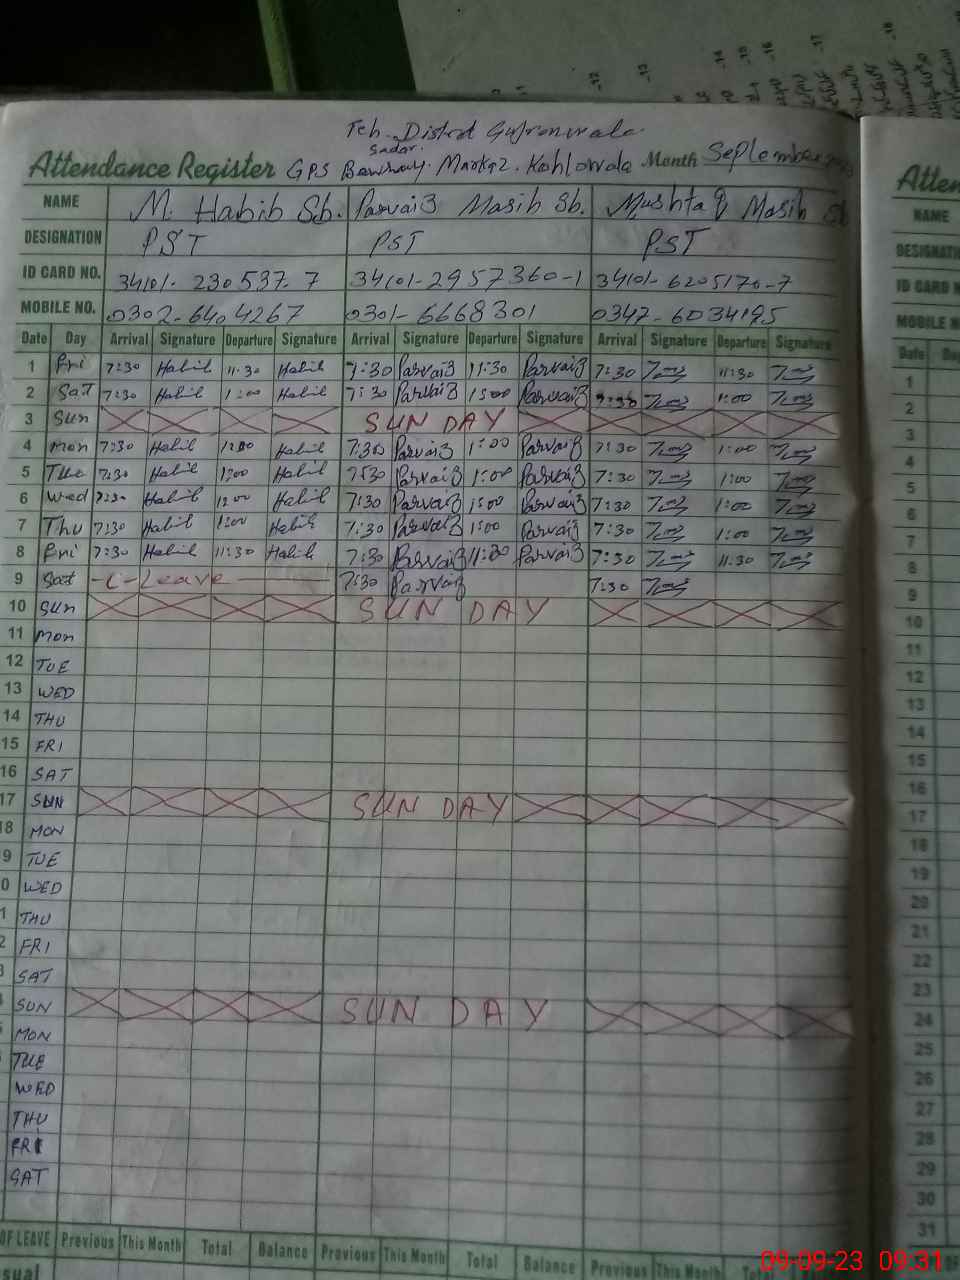 Teh. Distrct Gujranwala.
Sadar.
Attendance Register GPS Markaz. Kohlowala Month September
NAME M. Habib Sb. Parvai3 Masih Sb. Mushtaq Masih Sb
DESIGNATION PST PST PST
ID CARD NO. 34101-230537.7 34101-2957360-1 34101-6205170-7
MOBILE NO. 0302-6404267 0301-6668301 0347-6034195
Date Day Arrival Signature Departure Signature Arrival Signature Departure Signature Arrival Signature Departure Signature
1 Fri 7:30 Habib 11:30 Habib 7:30 Parvai3 11:30 Parvai3 7:30 11:30
2 Sat 7:30 Habib 1:00 Habib 7:30 Parvai3 1:00 Parvai3 1:00
3 Sun SUNDAY
4 Mon 7:30 Habib Habib 7:30 Parvai3 1:00 Parvai3 7:30 1:00
5 Tue 7:30 Habib 1:00 Habib 7:30 Parvai3 1:00 Parvai3 7:30 1:00
6 Wed 7:30 Habib Habib 7:30 Parvai3 1:00 Parvai3 7:30 1:00
7 Thu 7:30 Habib 1:00 Habib 7:30 Parvai3 1:00 Parvai3 7:30 1:00
8 Fri 7:30 Habib 11:30 Habib 7:30 Parvai3 11:30 Parvai3 7:30 11:30
9 Sat -C-Leave 7:30 Parvai3 7:30
10 Sun SUNDAY
11 Mon
12 TUE
13 WED
14 THU
15 FRI
16 SAT
17 SUN SUNDAY
18 MON
9 TUE
0 WED
1 THU
2 FRI
SAT
SUN SUNDAY
MON
TUE
WED
THU
FRI
SAT
OF LEAVE Previous This Month Total Balance Previous This Month Total Balance Previous This Month
sual
Atten
NAME
DESIGNATI
ID CARD N
MOBILE N
Date
1
2
3
4
5
6
7
8
9
10
11
12
13
14
15
16
17
18
19
20
21
22
23
24
25
26
27
28
29
30
31
09-09-23 09:31